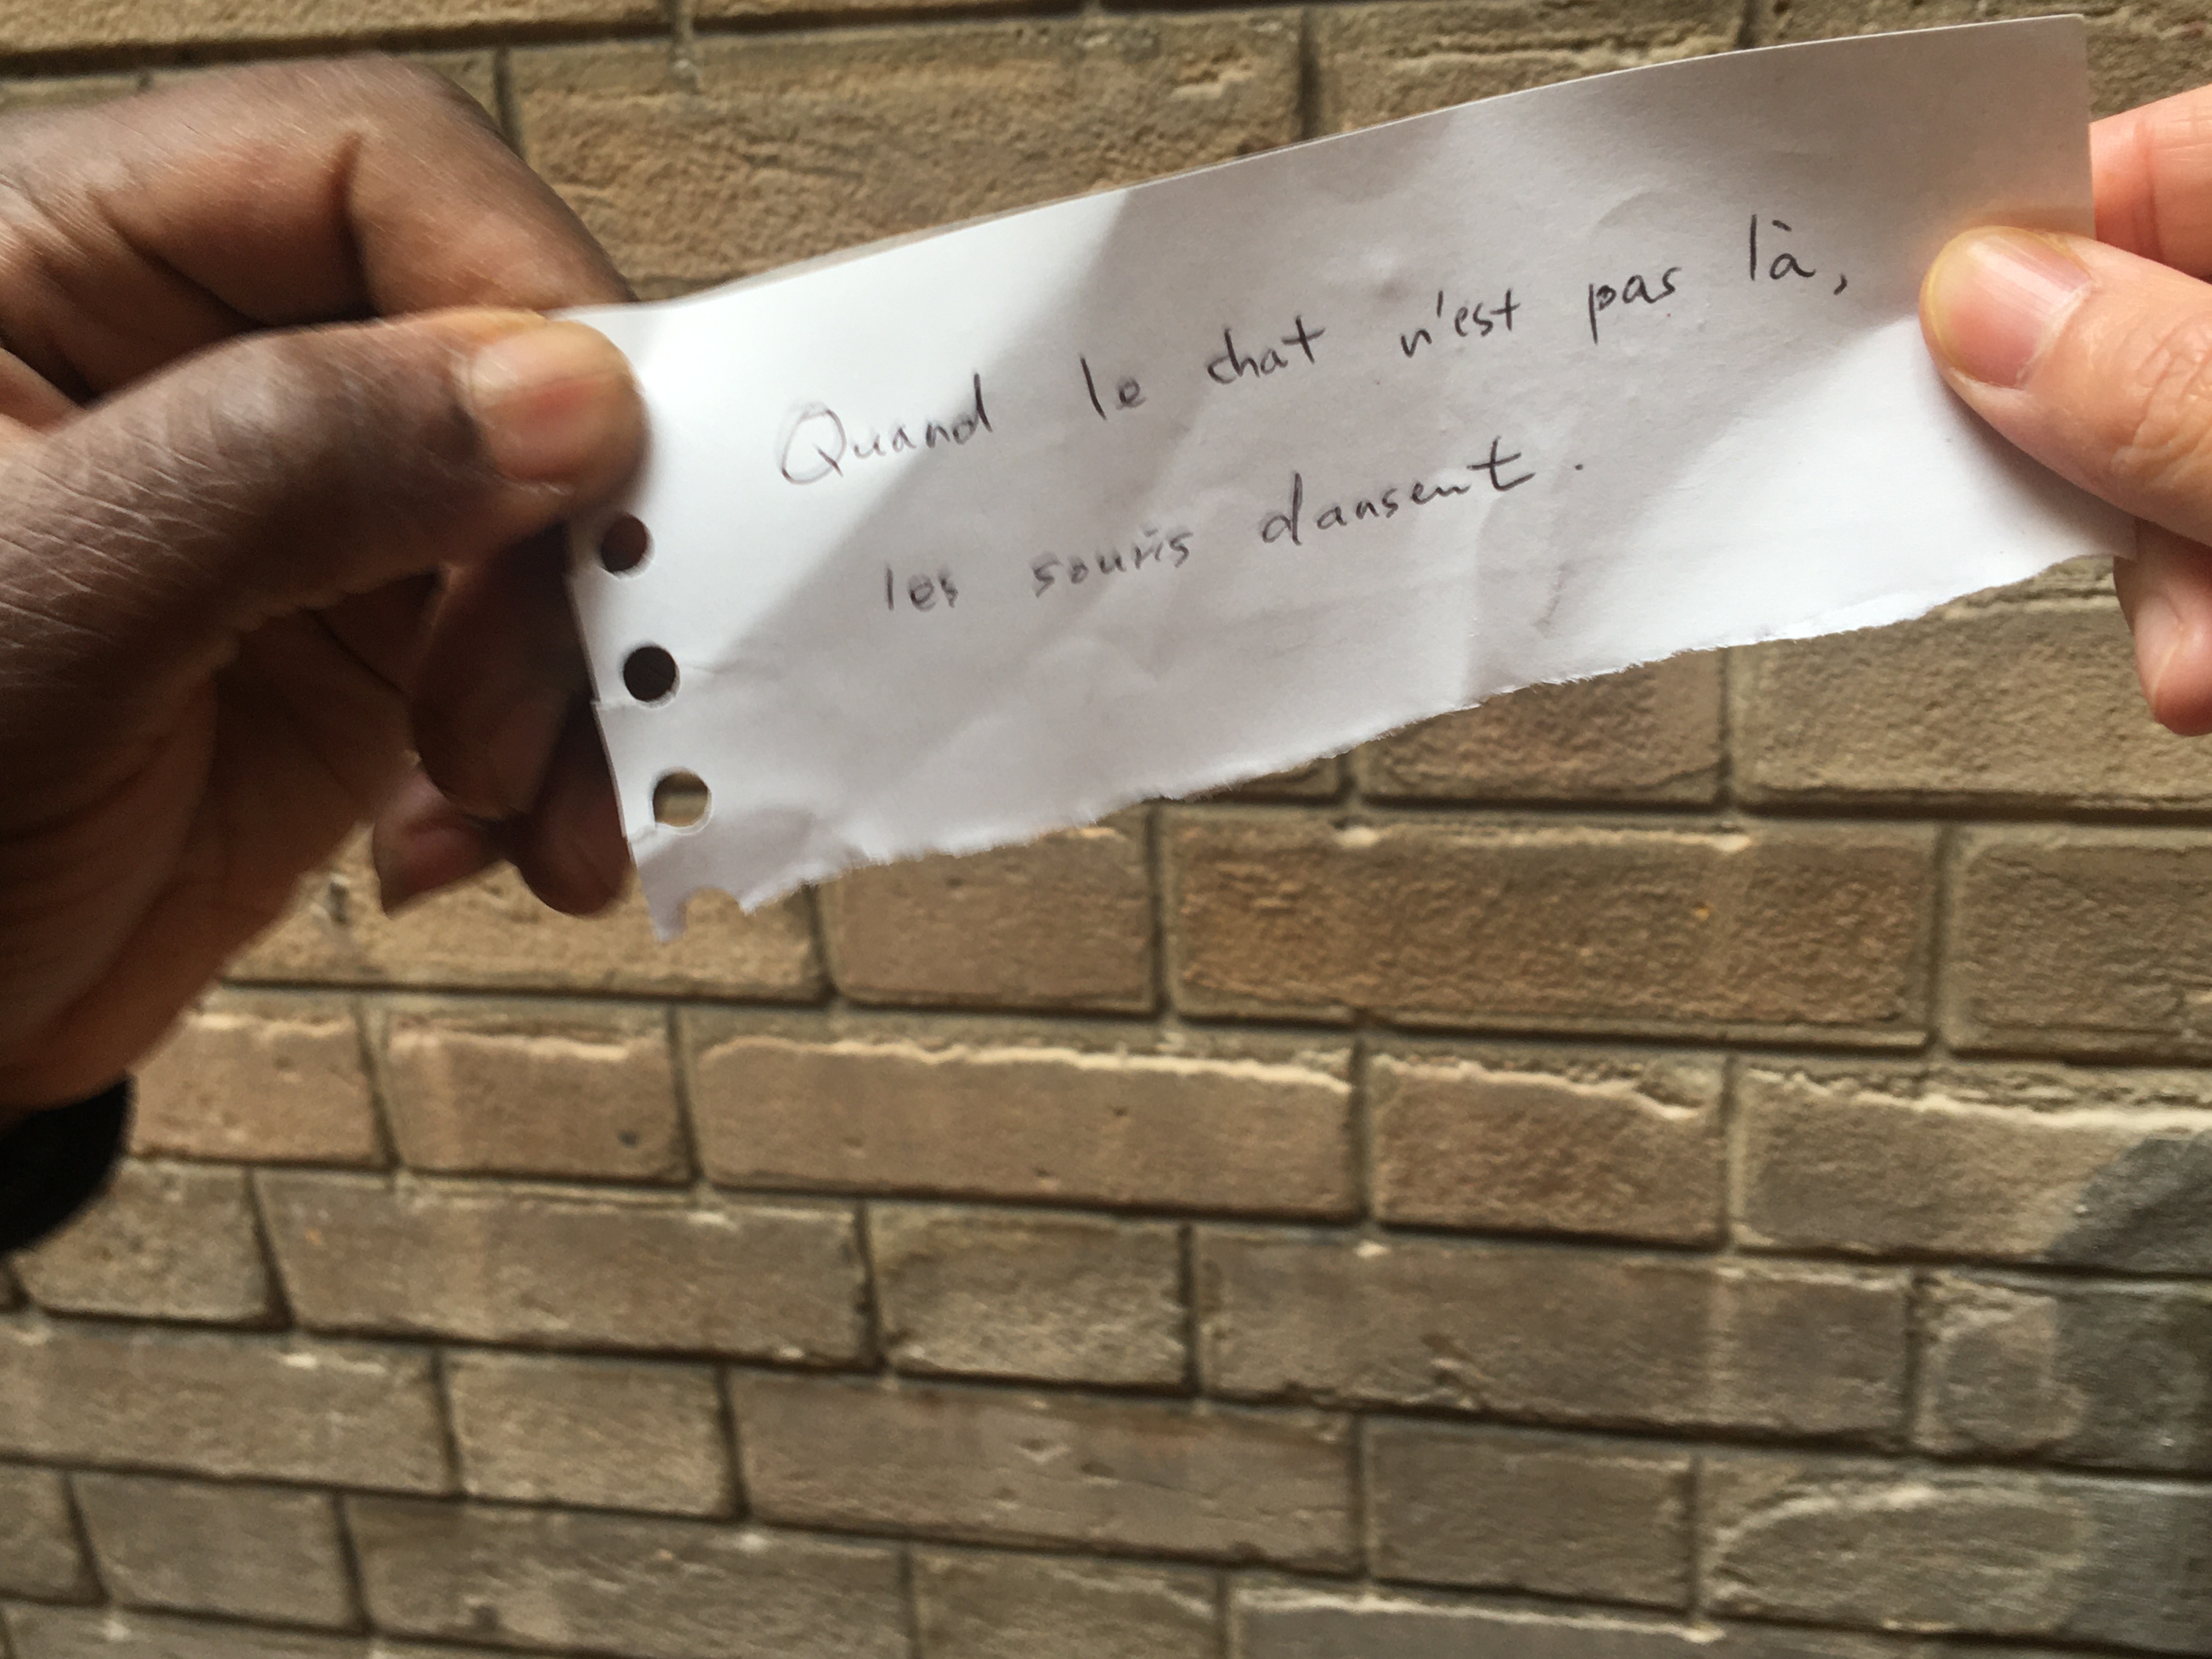 Quand le chat n'est pas là,
les souris dansent.